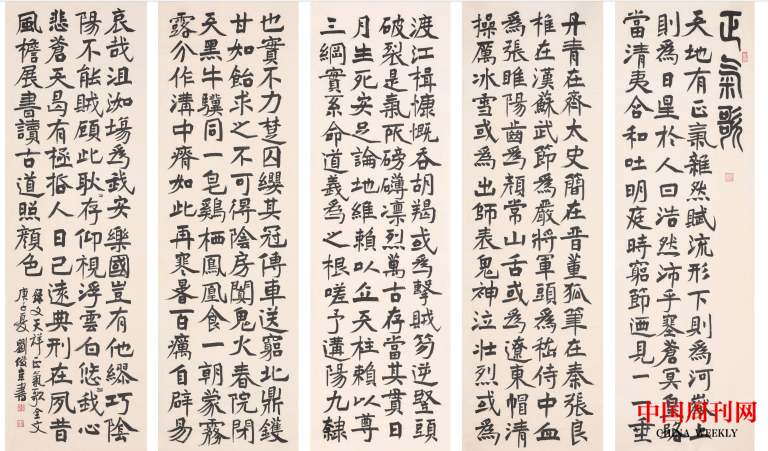 正氣歌
天地有正氣雜然賦流形下則為河嶽上
則為日星於人曰浩然沛乎塞蒼冥皇路
當清夷含和吐明庭時窮節迺見一一垂
丹青在齊太史簡在晉董狐筆在秦張良
椎在漢蘇武節為嚴將軍頭為嵇侍中血
為張睢陽齒為顏常山舌或為遼東帽清
操厲冰雪或為出師表鬼神泣壯烈或為
渡江楫慷慨吞胡羯或為擊賊笏逆豎頭
破裂是氣所磅礴凜烈萬古存當其貫日
月生死安足論地維賴以立天柱賴以尊
三綱實系命道義為之根嗟予遘陽九隸
也實不力楚囚纓其冠傳車送窮北鼎鑊
甘如飴求之不可得陰房闃鬼火春院閉
天黑牛驥同一皂鷄栖鳳凰食一朝蒙霧
露分作溝中瘠如此再寒暑百癘自辟易
哀哉沮洳場為我安樂國豈有他繆巧陰
陽不能賊顧此耿々存仰視浮雲白悠々我心
悲蒼天曷有極哲人日已遠典刑在夙昔
風檐展書讀古道照顏色
錄文天祥正氣歌全文
庚子夏劉俊書
中国周刊网
CHINA WEEKLY